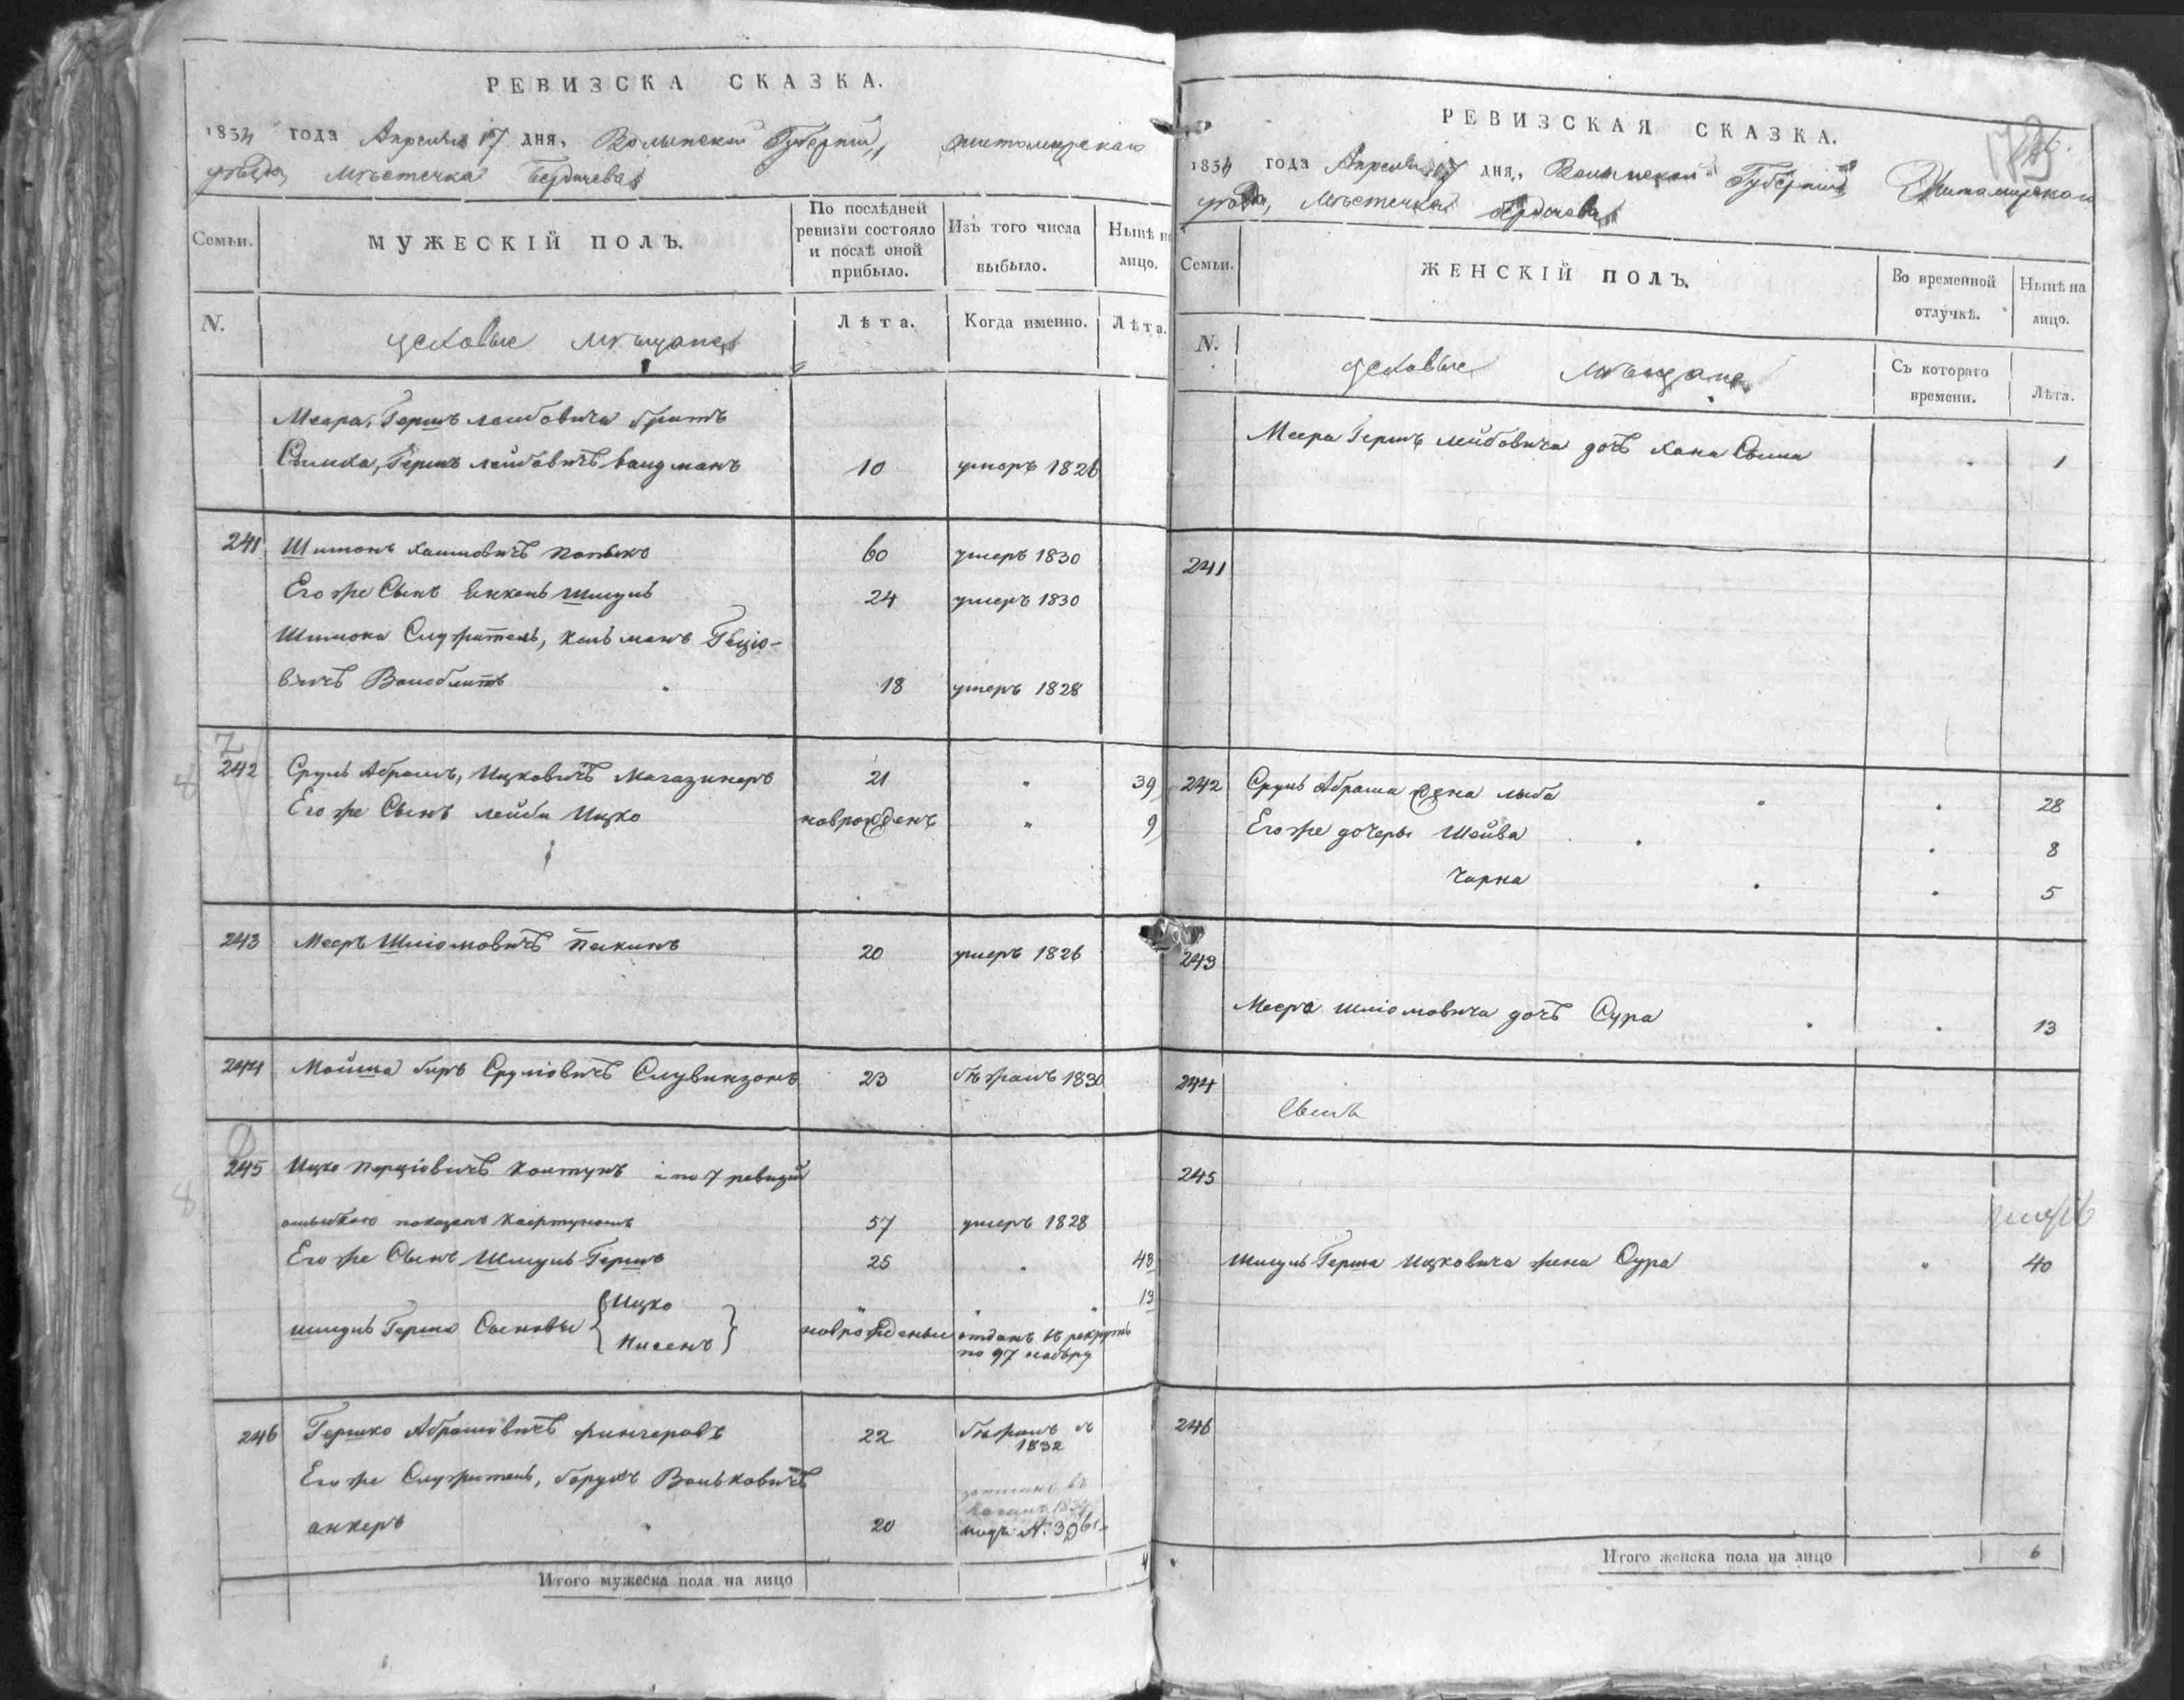 РЕВИЗСКА СКАЗКА.
1834 года Апреля 17 дня, Волынской Губернии, Житомирскаго
уѣзда, Мѣстечка Бердичева
Семьи. МУЖЕСКІЙ ПОЛЪ. По послѣдней ревизіи состояло и послѣ оной прибыло. Изъ того числа выбыло. Нынѣ на лицо.
N. цеховые мѣщане Лѣта. Когда именно. Лѣта.
Меера, Гершъ Лейбовича братъ
Сымха, Гершъ Лейбовичъ 10 умеръ 1826
241 Шимонъ Хаимовичъ 60 умеръ 1830
Его же Сынъ Янкель Шмуль 24 умеръ 1830
Шимона Служитель, Кельманъ
вичъ 18 умеръ 1828
242 Сруль Абрамъ, Ицковичъ Магазинеръ 21 " 39
Его же Сынъ Лейби Ицко новорожденъ " 9
243 Мееръ Шліомовичъ 20 умеръ 1826
244 Мойша Беръ Сруліовичъ 23 бѣжалъ 1830
245 Ицко Перціовичъ Колтунъ а по 7 ревизіи
ошибкою показанъ 57 умеръ 1828
Его же Сынъ Шмуль Гершъ 25 " 43
Ицко " " " 13
Шмуль Герша Сыновья новорожденые отданъ въ рекруты
Нисенъ по 97 набору
246 Гершко Абрамовичъ 22 бѣжалъ въ
1832
Его же Служитель, Борухъ Вольковичъ
записанъ въ
анкеръ 20
подъ №
Итого мужеска пола на лицо 4
РЕВИЗСКАЯ СКАЗКА.
1834 года Апреля 17 дня, Волынской Губерніи Житомирскаго
уѣзда, Мѣстечка Бердичева
Семьи. ЖЕНСКІЙ ПОЛЪ. Во временной отлучкѣ. Нынѣ на лицо.
N. цеховые мѣщане Съ котораго времени. Лѣта.
Меера Гершъ Лейбовича дочь Хана Сыма 1
241
242 Сруль Абрама жена Лыба 28
Его же дочеры Шейва 8
Чарна 5
243
Меера Шліомовича дочь Сура 13
244
245
Шмуль Герша Ицковича жена Сура " 40
246
Итого женска пола на лицо 6